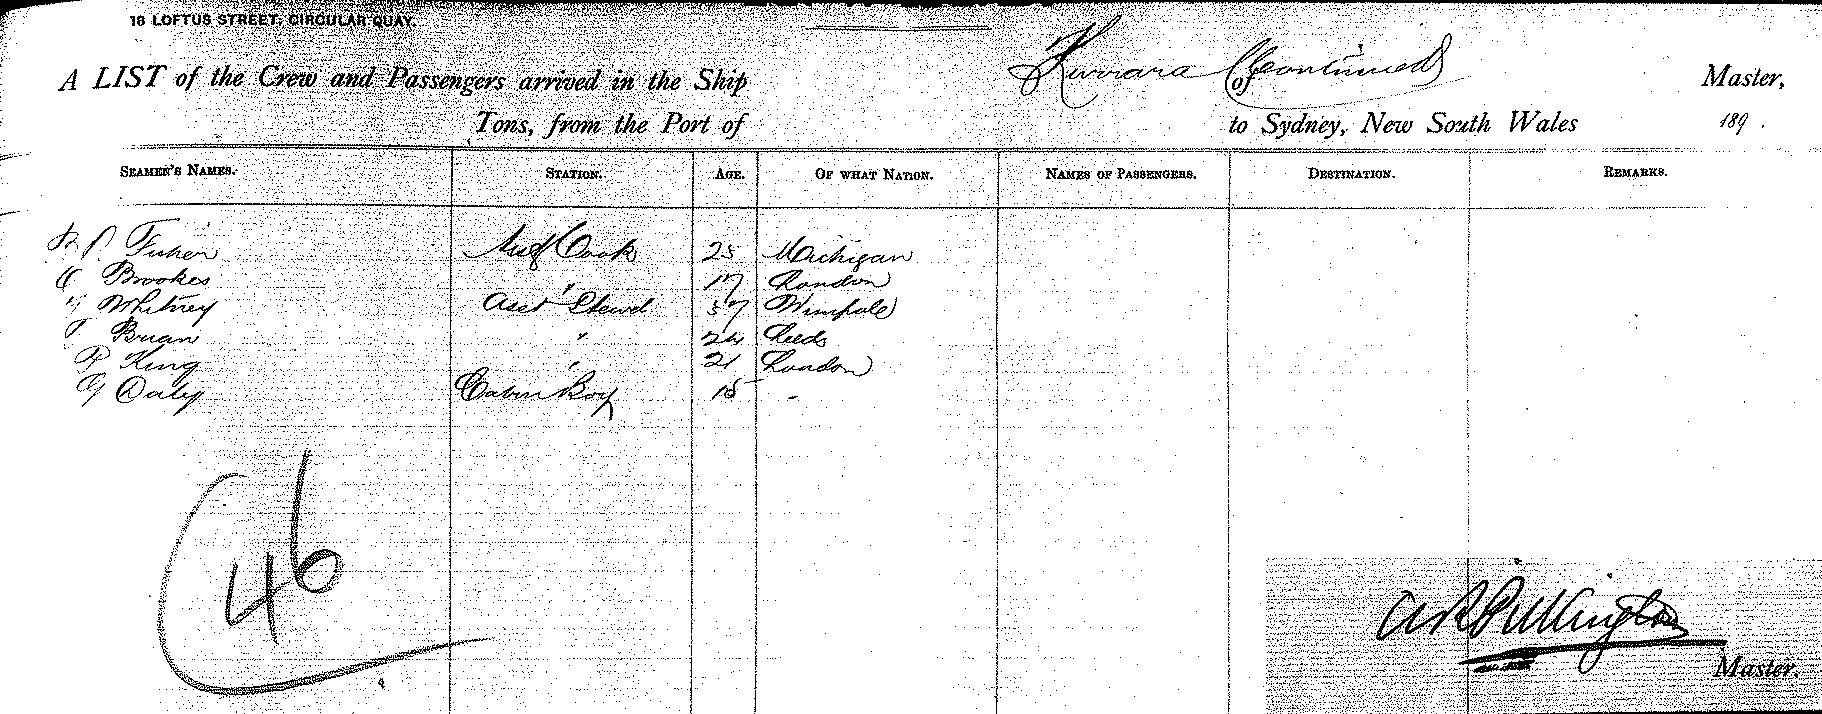 18 LOFTUS STREET, CIRCULAR QUAY.
A LIST of the Crew and Passengers arrived in the Ship Kurrara (Continued) of Master,
Tons, from the Port of to Sydney, New South Wales 189 .
SEAMEN'S NAMES. STATION. AGE. OF WHAT NATION. NAMES OF PASSENGERS. DESTINATION. REMARKS.
Fisher Cook 25 Michigan
C Brookes " 17 London
Whitney Asst Stewd 37 Wimpole
Brian " 24 Leeds
P King " 21 London
G Daley Cabin Boy 15 "
46
Pillington
Master.